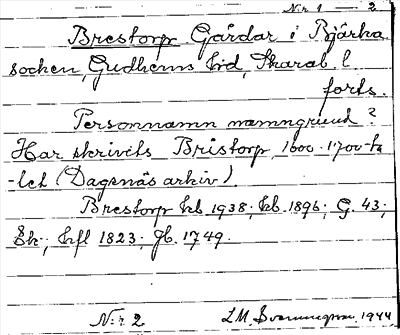 Nr 1 — 2
Brestorp Gårdar i Bjärka
socken, Gudhems hrd, Skarab. l.
forts.
Personnamn namngrund?
Har skrivits Bristorp 1600-1700-ta
-let (Dagsnäs arkiv).
Brestorp kb. 1938; kb. 1896; G. 43;
Ek; Hfl 1823; Jb. 1749.
N:r 2 L.M. Svenungsson. 1944